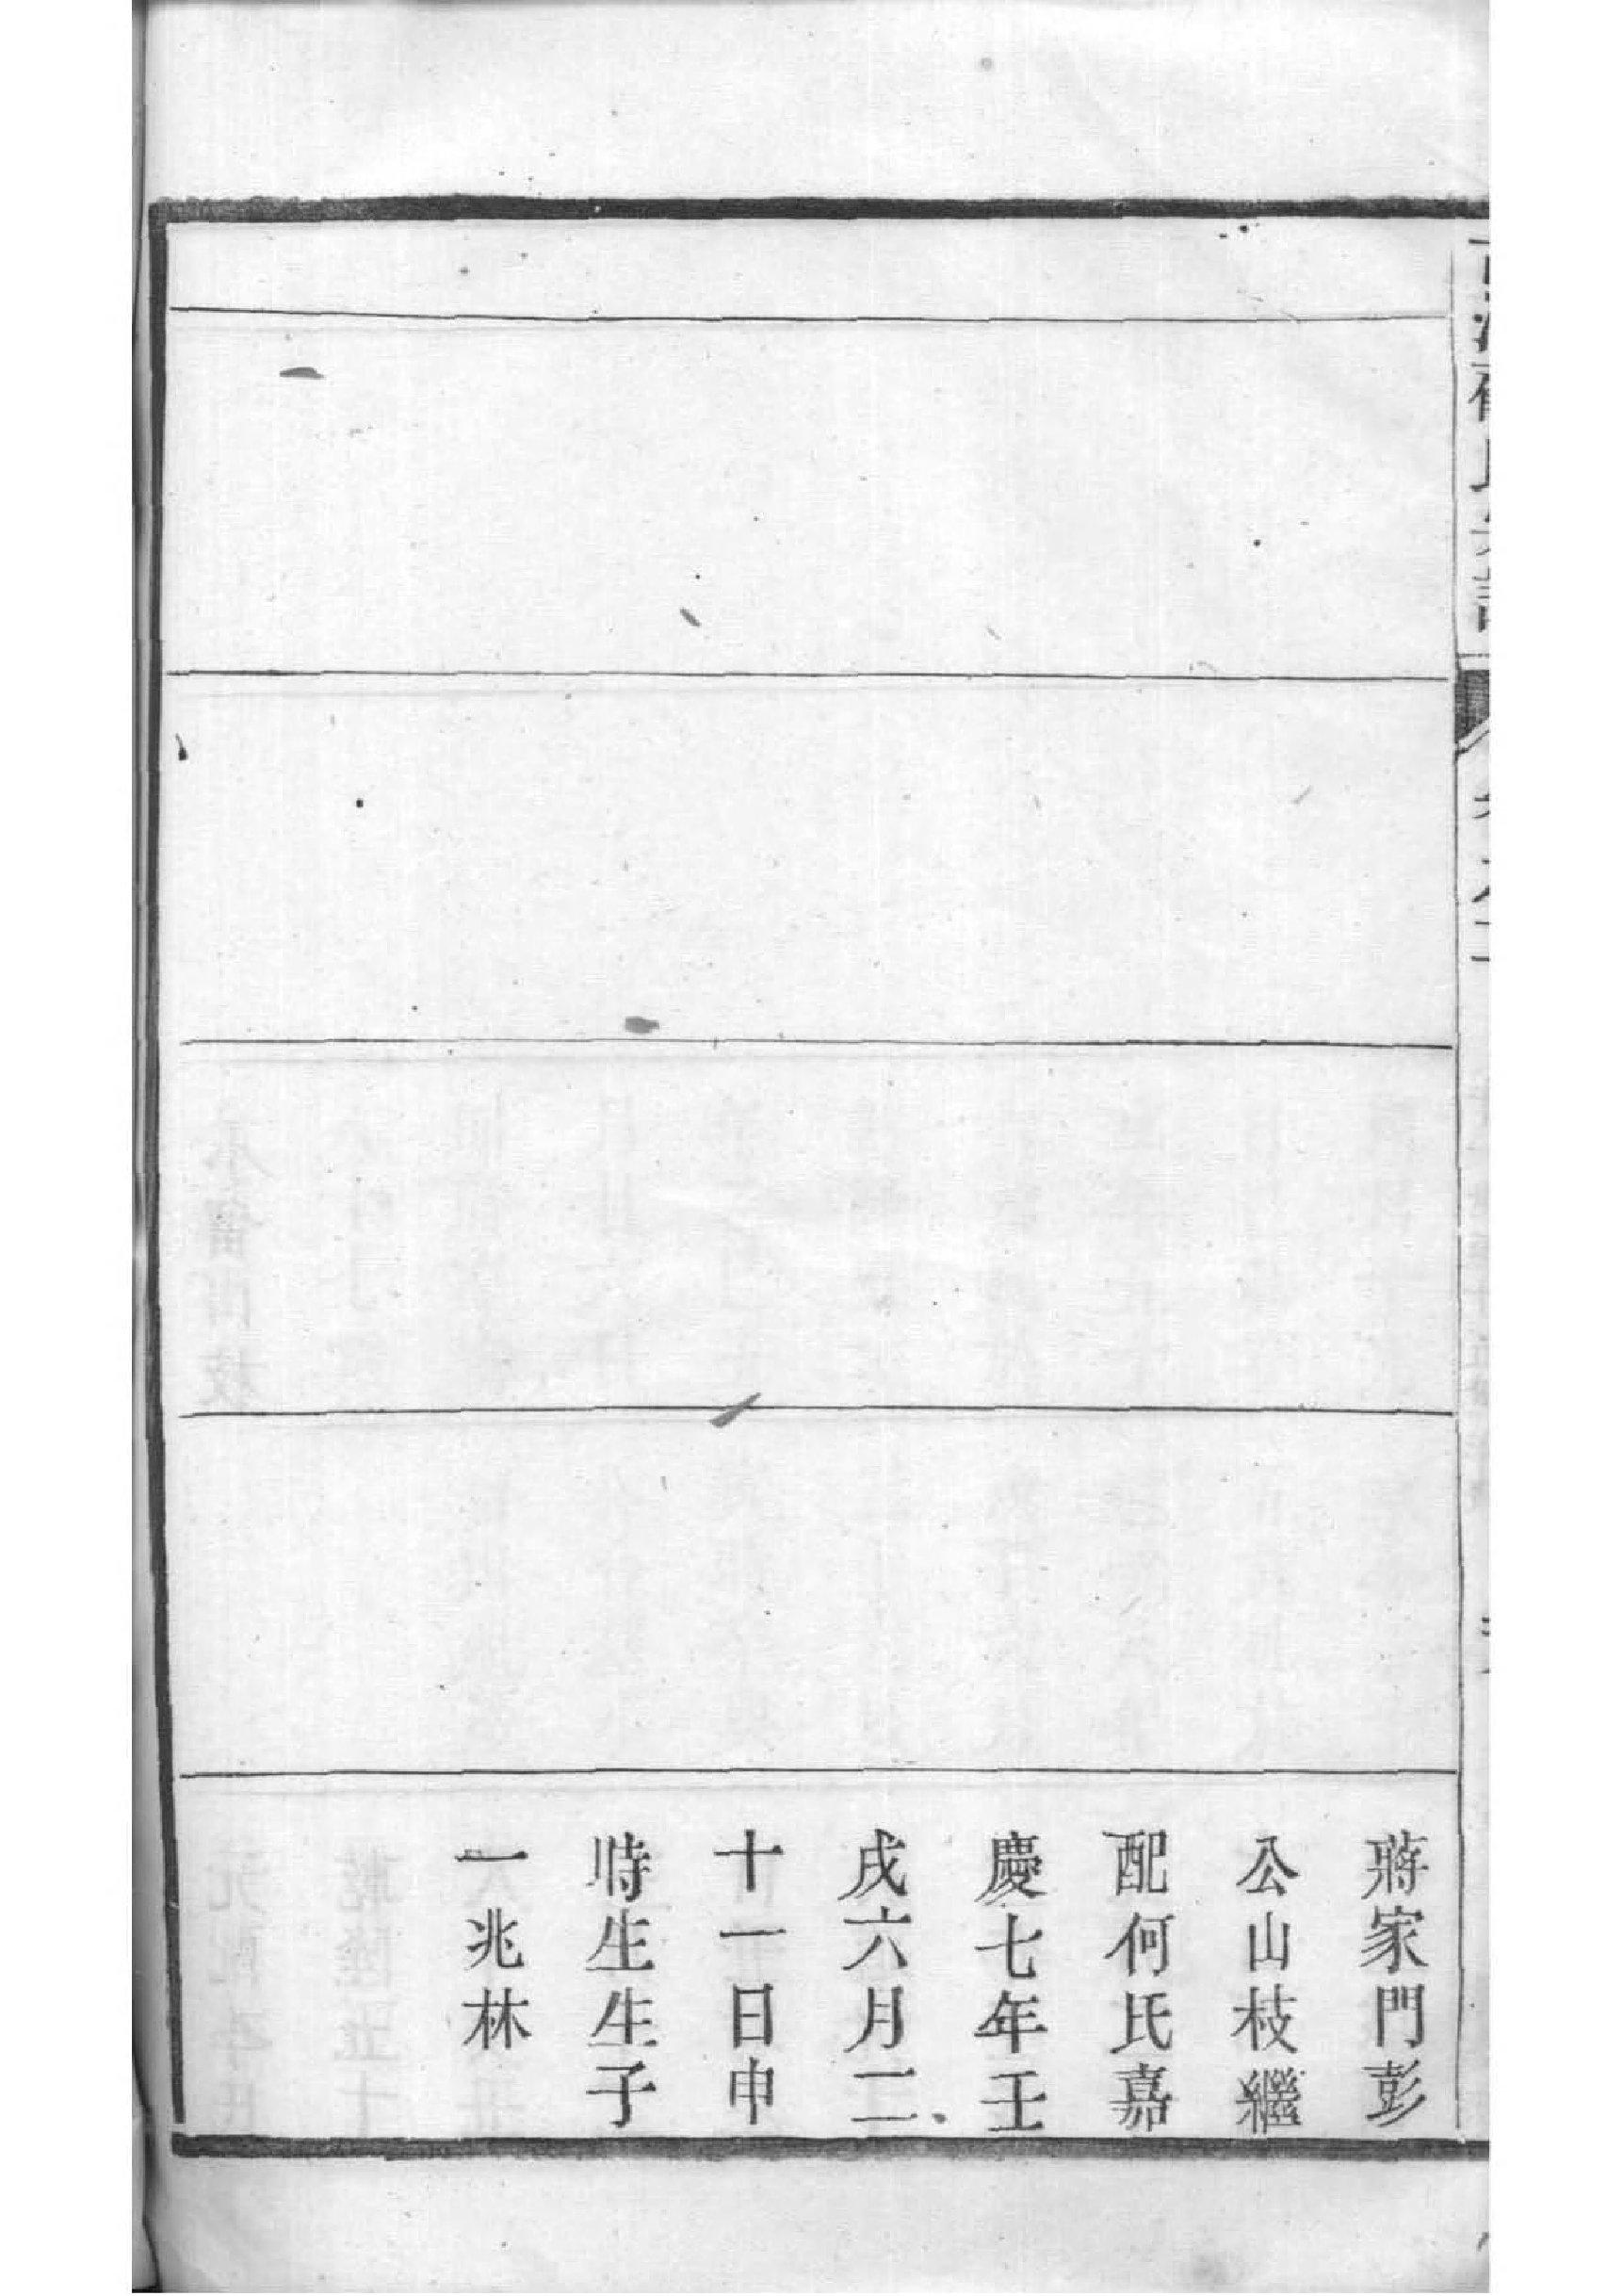 蔣家門彭
公山枝繼
配何氏嘉
慶七年壬
戌六月二
十一日申
時生生子
一兆林